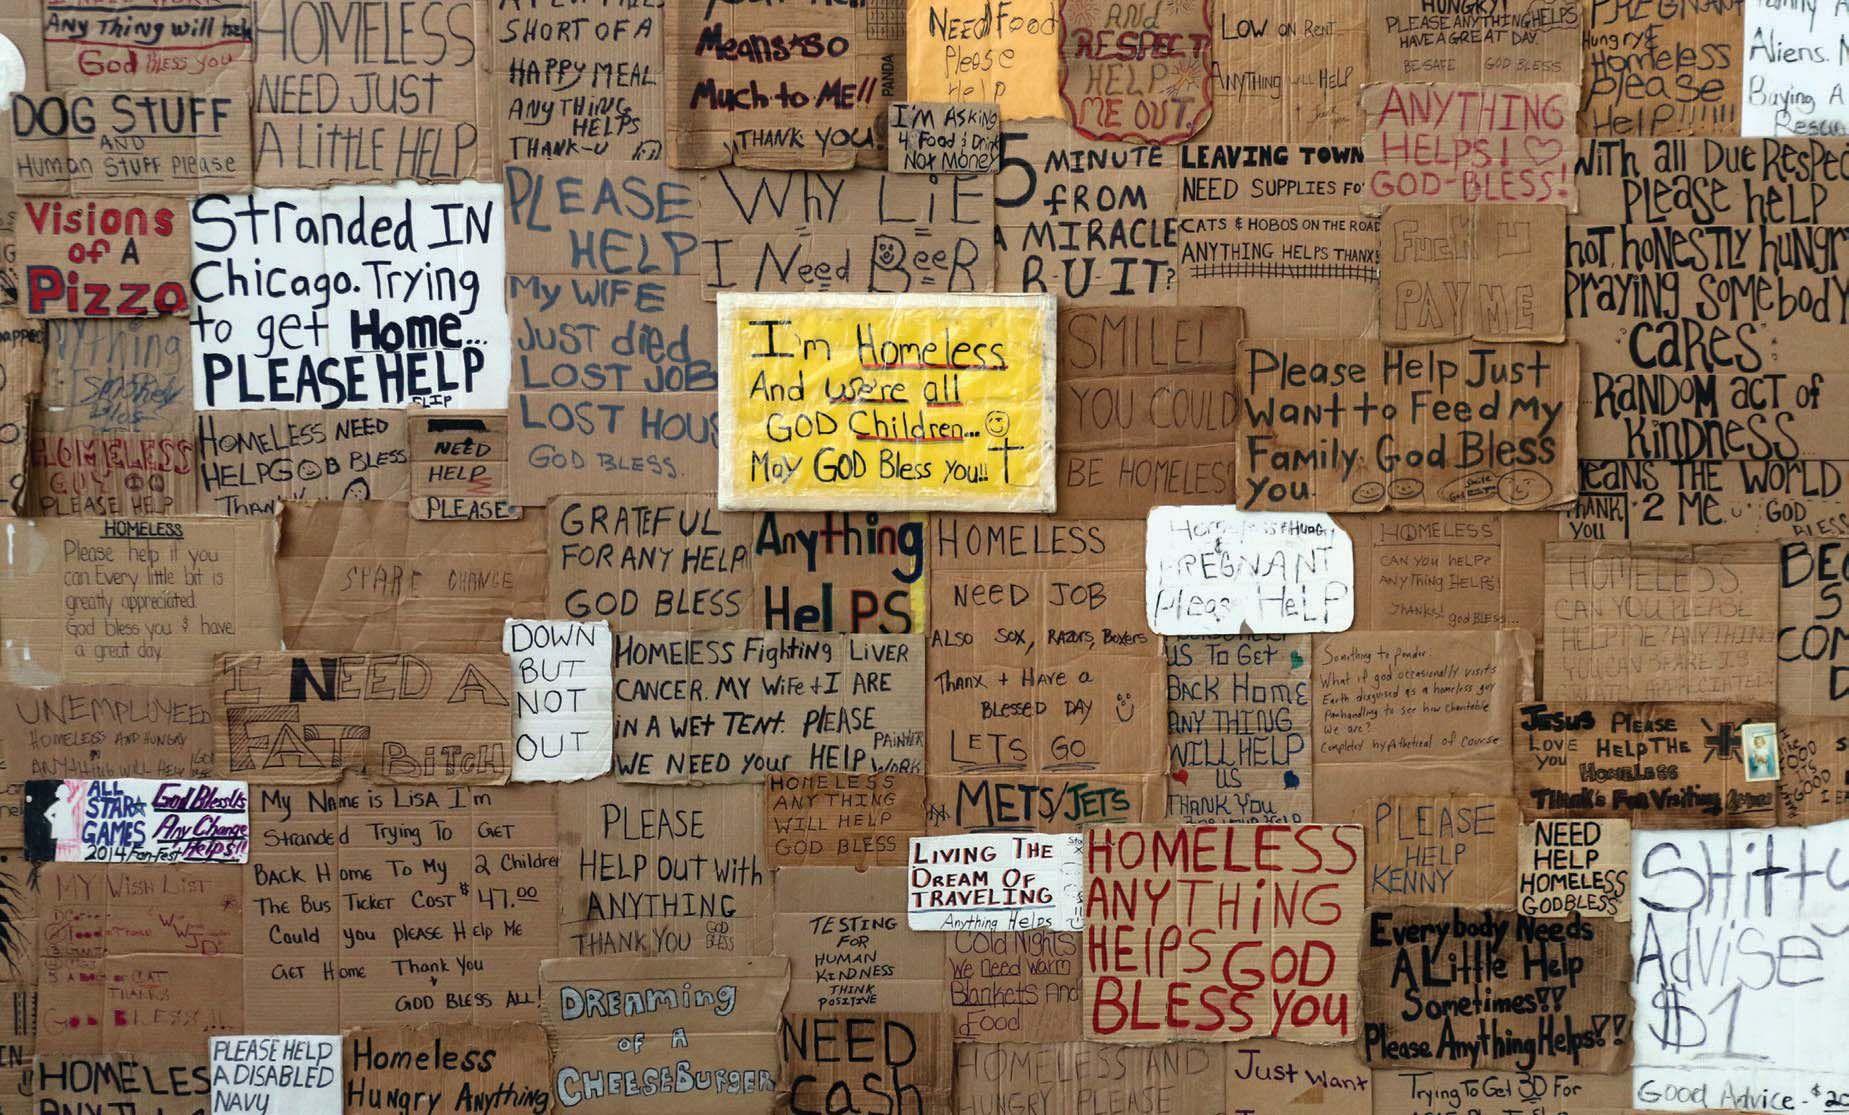 Any Thing will help
God Bless you
HOMELESS
NEED JUST
A LITTLE HELP
SHORT OF A
HAPPY MEAL
ANYTHING
HELPS
THANK-U
Means so
Much to ME!!
THANK YOU!
PANDA
NEED Food
Please
Help
AND
RESPECT
HELP
ME OUT.
LOW ON RENT
ANYTHING WILL HELP
HUNGRY!
PLEASE ANYTHING HELPS
HAVE A GREAT DAY
BE SAFE GOD BLESS
PREGNANT
Hungry &
Homeless
Please
Help!!!!!!
Aliens.
Buying A
DOG STUFF
AND
Human STUFF Please
I'M ASKing
4 Food & Drink
Not Money
ANYTHING
HELPS! ♡
GOD-BLESS!
Visions
of A
Pizza
Stranded IN
Chicago. Trying
to get Home...
PLEASE HELP
SLIP
PLEASE
HELP
My WIFE
JUST died
LOST JOB
LOST HOUS
GOD BLESS.
WHY LiE
I Need BeeR
5 MINUTE
fROM
A MIRACLE
R-U-IT?
LEAVING TOWN
NEED SUPPLIES FO
CATS & HOBOS ON THE ROAD
ANYTHING HELPS THANX!
Fuck U
PAY ME
WiTH all Due Respec
Please help
hot, honestly hungry
Praying somebody
cares
RANDOM ACT of
Kindness
Means THE WORLD
2 ME
THANK
YOU
GOD
BLESS
I'm Homeless
And we're all
GOD Children...
May GOD Bless you!!
SMILE!
YOU COULD
BE HOMELESS
Please Help Just
want to Feed My
Family. God Bless
you.
HOMELESS
GUY
PLEASE HELP
HOMELESS NEED
HELP GOD BLESS
Thank
NEED
HELP
PLEASE
HOMELESS
Please help if you
can. Every little bit is
greatly appreciated.
God bless you & have
a great day.
SPARE CHANGE
GRATEFUL
FOR ANY HELP
GOD BLESS
Anything
HelPS
HOMELESS
NEED JOB
ALSO SOX, RAZORS, BOXERS
THANX + HAVE A
BLESSED DAY
LETS GO
Homeless Hungry
&
PREGNANT
Please HeLP
HOMELESS
CAN YOU HELP?
ANYTHING HELPS!
THANKS! god BLESS
HOMELESS
CAN YOU PLEASE
HELP ME? ANYTHING
YOU CAN SPARE IS
APPRECIATED
UNEMPLOYEED
HOMELESS AND HUNGRY
ANYTHING WILL HELP
I NEED A
FAT BiTCH
DOWN
BUT
NOT
OUT
HOMElESS Fighting LiVER
CANCER. MY WiFe + I ARE
iN A WEt TENt. PlEASE
WE NEED YOUR HElP
PAINTER
WORK
US TO GET
BACK Home
ANY THING
WILL HELP
US
THANK YOU
Something to ponder.
What if god occasionally visits
Earth disguised as a homeless guy
Panhandling to see how charitable
We are?
Completely hypothetical of course
JESUS PLEASE
LOVE HELP THE
YOU HOMELESS
ALL
STAR
GAMES
2014 Fan-Fest
God Bless Us
Any Change
Helps!!
My Name is LiSA I'm
Stranded Trying To GET
BACK Home To My 2 Children
The Bus Ticket Cost $47.00
Could you pLEASE Help Me
GET Home Thank You
GOD BLESS ALL!
MY WISH LIST
THANKS
PLEASE
HELP OUT WITH
ANYTHING
THANK YOU GOD BLESS
HOMELESS
ANYTHING
WILL HELP
GOD BLESS
METS/JETS
LIVING THE
DREAM OF
TRAVELING
Anything Helps
TESTING
FOR
HUMAN
KINDNESS
THINK
POSITIVE
Cold Nights
We Need Warm
Blankets And
Food
HOMELESS
ANYTHING
HElPS GOD
BLESS YOU
PLEASE
HELP
KENNY
NEED
HELP
HOMELESS
GODBLESS
Everybody Needs
A Little Help
Sometimes!!
Please Anything Helps!!
SHitty
AdViSe
$1
Good Advice - $20
HOMELES
PLEASE HELP
A DISABLED
NAVY
Homeless
Hungry Anything
DREAMING
OF A
CHEESEBURGER
NEED
CASH
HOMELESS AND
HUNGRY PLEASE
Just want
Trying To Get 3D For